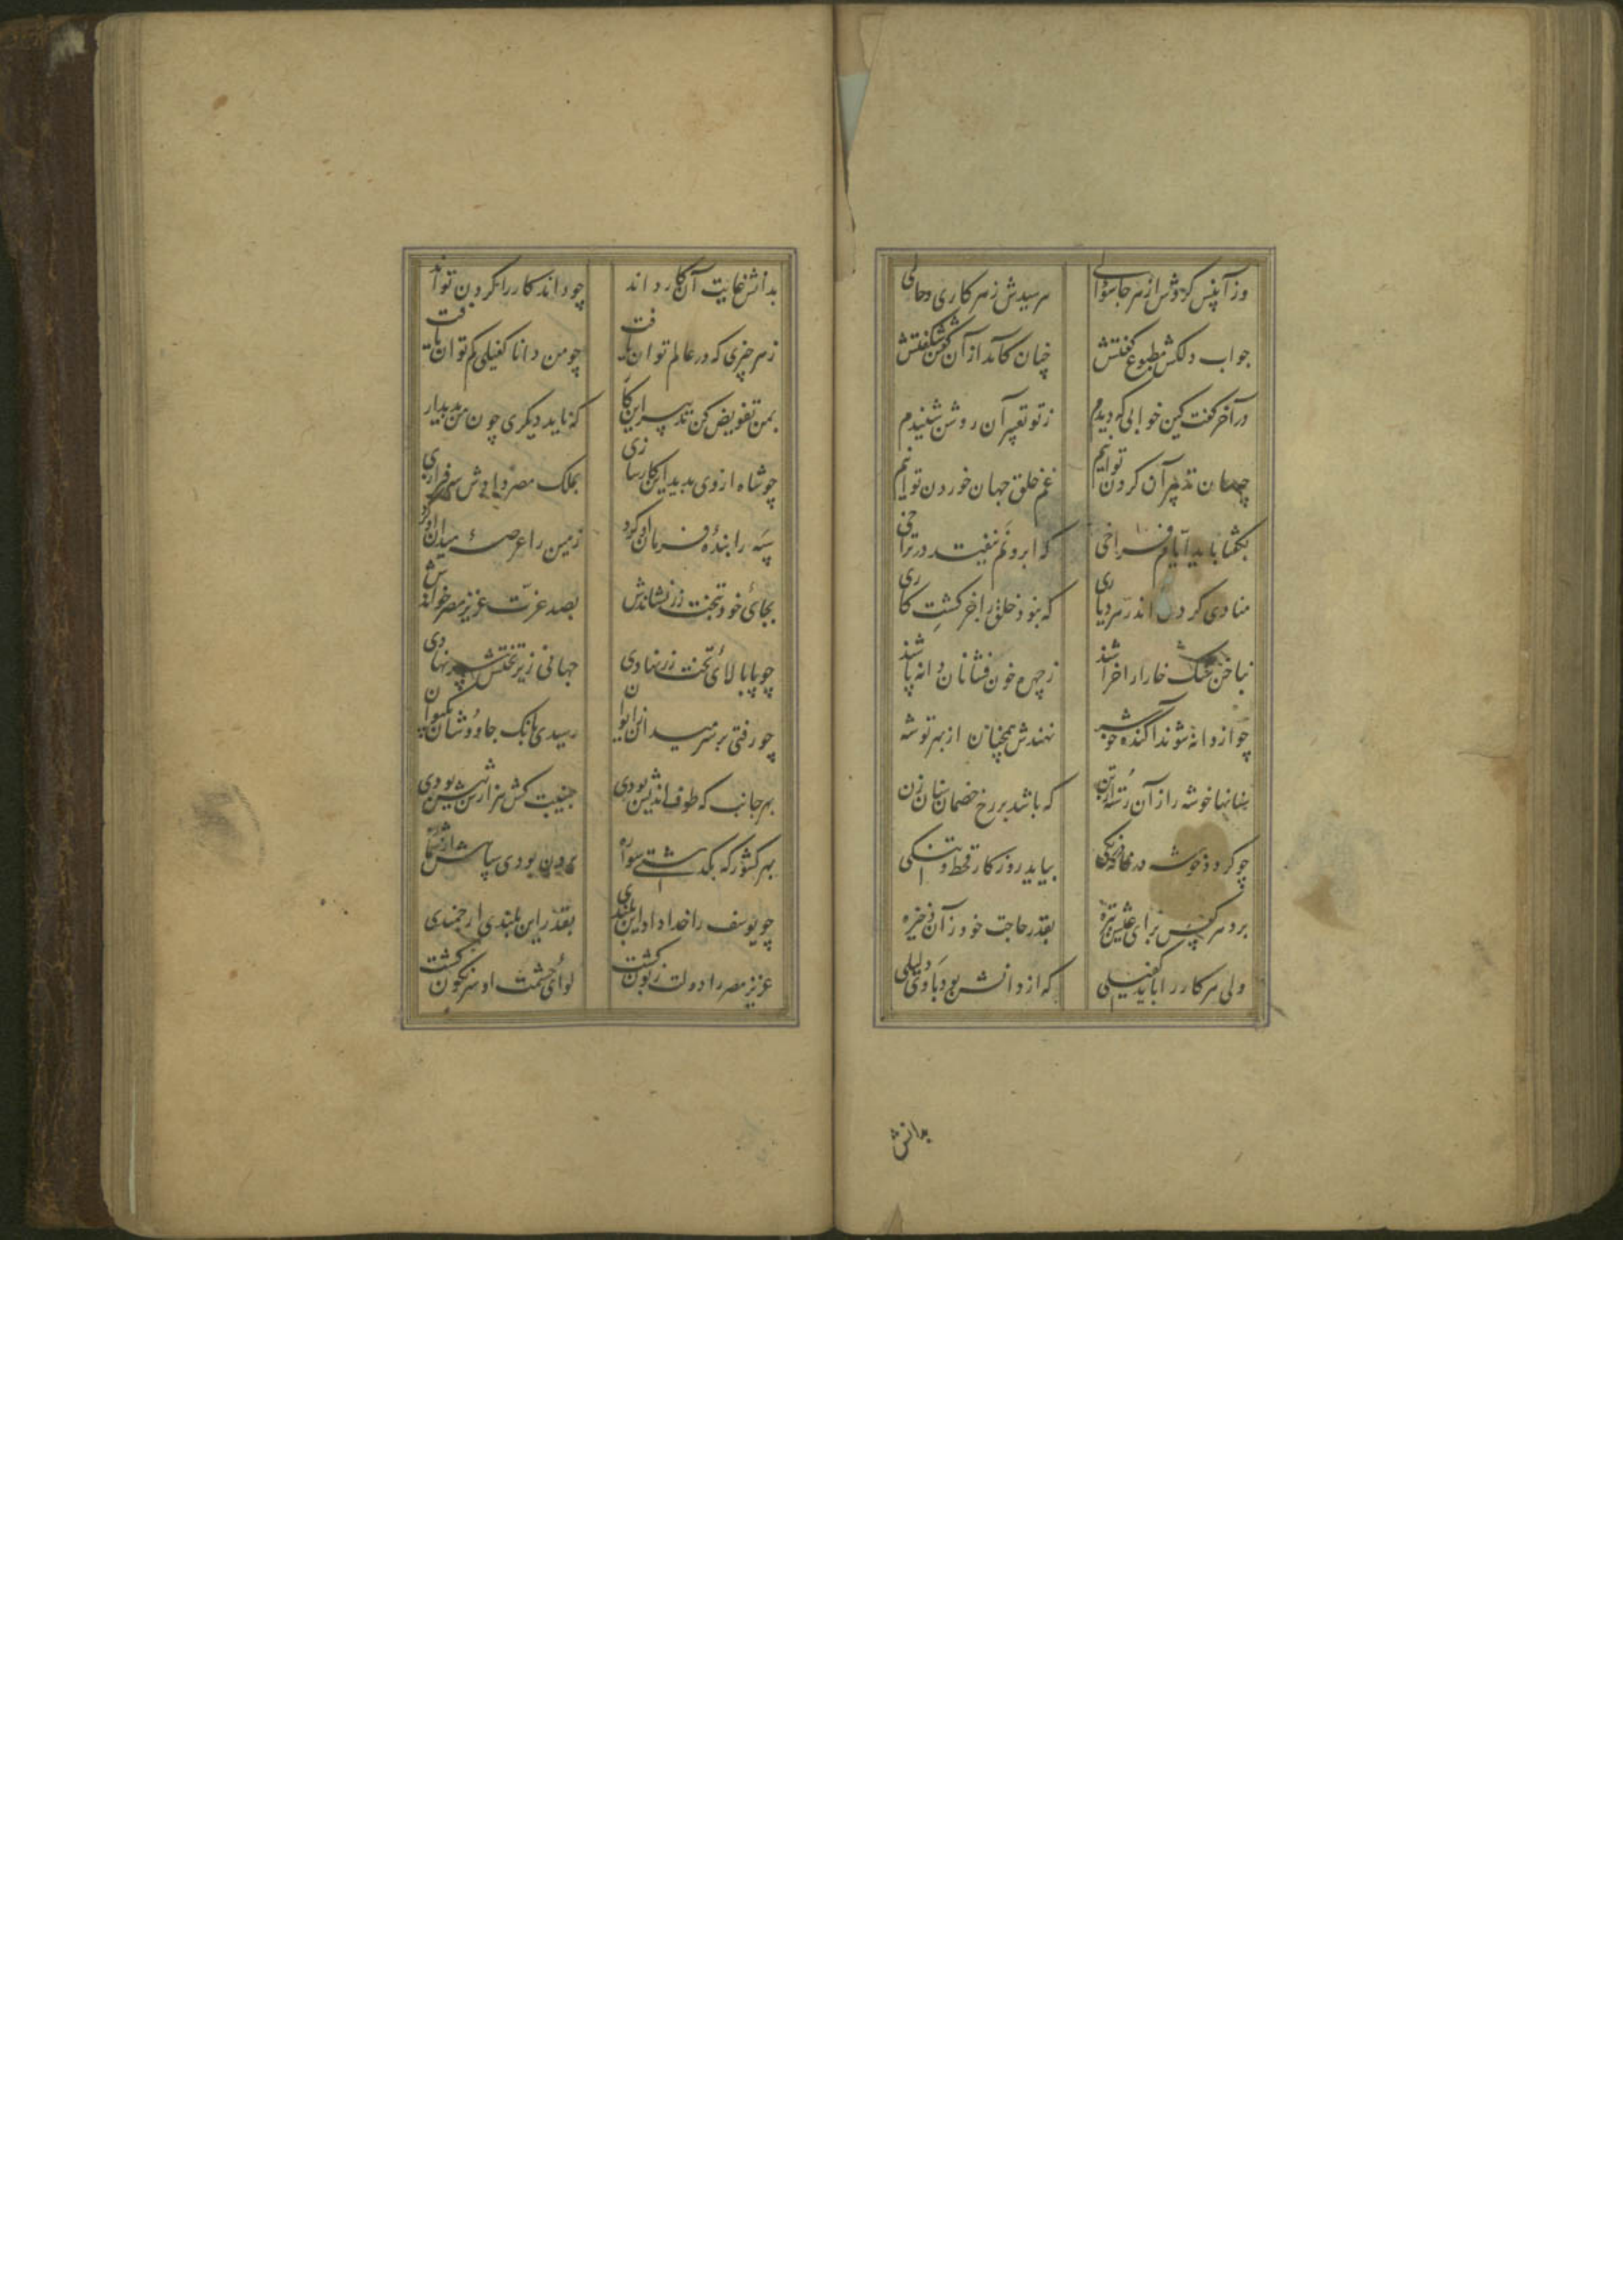 وزآنپس کردش از هر جا سؤالی بپرسیدش زهر کاری و حالی
جواب دلکش مطبوع گفتش چنان کآمد از آن گفتن شگفتش
در آخر گفت کین خوابی که دیدم ز تو تعبیر آن روشن شنیدم
چسان تدبیر آن کردن توانیم غم خلق جهان خوردن توانیم
بگفتا باید ایام فراخی که ابر و نم نیفتد در تراخی
منادی کردن اندر هر دیاری که نبود خلق را جز کشت کاری
بناخن سنگ خارا را خراشند ز چهره خون فشانان دانه پاشند
چو از دانه شوند آگنده خوشه نهندش همچنان از بهر توشه
سنانها خوشه را زآن رسته از تن که باشد بر رخ خصمان سنان زن
چو گردد خوشه در خانه درنگی بیاید روزکار قحط و تنگی
برد هر کس برای عیش تیره بقدر حاجت خود زآن ذخیره
ولی هر کار را باید کفیلی که از دانش بود با وی دلیلی
بدانش
بدانش غایت آن کار داند چو داند کار را کردن تواند
زهر چیزی که در عالم توان یافت چو من دانا کفیلی کم توان یافت
بمن تفویض کن تدبیر این کار که ناید دیگری چون من پدیدار
چو شاه از وی بدید این کارسازی بملک مصر دادش سرفرازی
سپه را بنده فرمان او کرد زمین را عرصهٔ میدان او کرد
بجای خود بتخت زر نشاندش بصد عزّت عزیز مصر خواندش
چو پا بالای تخت زر نهادی جهانی زیر تختش سر نهادی
چو رفتی بر سر میدان ز ایوان رسیدی بانک جاووشان بکیوان
بهر جانب که طوف اندیش بودی جنیبت کش هزارش بیش بودی
بهر کشور که بگذشتی سواره برون بودی سپاهش از شماره
چو یوسف را خدا داد این بلندی بقدر این بلندی ارجمندی
عزیز مصر را دولت زبون گشت لوای حشمت او سرنگون گشت